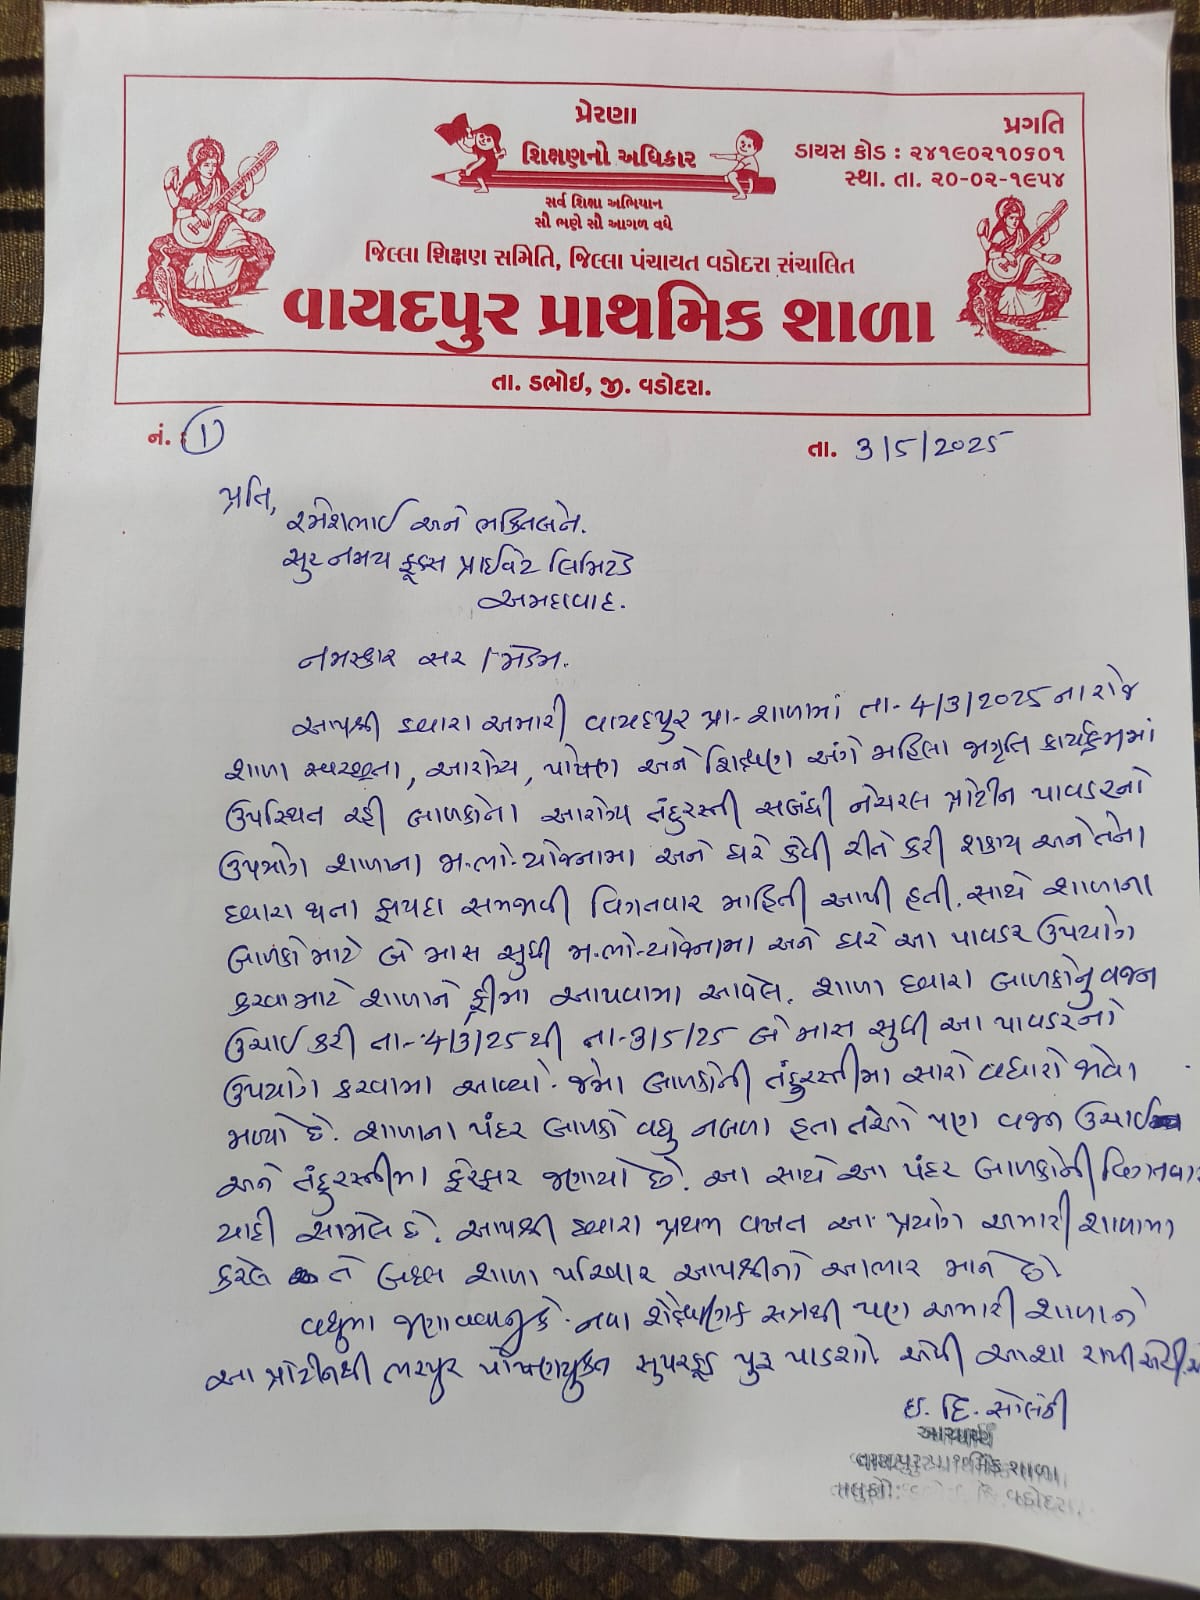 પ્રેરણા
શિક્ષણનો અધિકાર
સર્વ શિક્ષા અભિયાન
સૌ ભણે સૌ આગળ વધે
પ્રગતિ
ડાયસ કોડ : ૨૪૧૯૦૨૧૦૬૦૧
સ્થા. તા. ૨૦-૦૨-૧૯૫૪
જિલ્લા શિક્ષણ સમિતિ, જિલ્લા પંચાયત વડોદરા સંચાલિત
વાયદપુર પ્રાથમિક શાળા
તા. ડભોઇ, જી. વડોદરા.
નં. : 1
તા. 3/5/2025
પ્રતિ,
રમેશભાઈ અને ભક્તિબેન.
ફૂડ્સ પ્રાઈવેટ લિમિટેડ
અમદાવાદ.
નમસ્કાર સર / મેડમ.
આપશ્રી દ્વારા અમારી વાયદપુર પ્રા- શાળામાં તા- 4/3/2025 ના રોજ
શાળા સ્વચ્છતા, આરોગ્ય, પોષણ અને શિક્ષણ અંગે મહિલા જાગૃતિ કાર્યક્રમમાં
ઉપસ્થિત રહી બાળકોના આરોગ્ય તંદુરસ્તી સબંધી નેચરલ પ્રોટીન પાવડરનો
ઉપયોગ શાળાના મ.ભો.યોજનામા અને ઘરે કેવી રીતે કરી શકાય અને તેના
દ્વારા થના ફાયદા સમજાવી વિગતવાર માહિતી આપી હતી. સાથે શાળાના
બાળકો માટે બે માસ સુધી મ.ભો.યોજનામા અને ઘરે આ પાવડર ઉપયોગ
કરવા માટે શાળાને ફ્રીમા આપવામા આવેલ. શાળા દ્વારા બાળકોનુ વજન
ઉચાઈ કરી તા- 4/3/25 થી તા- 3/5/25 બે માસ સુધી આ પાવડરનો
ઉપયોગ કરવામા આવ્યો. જેમા બાળકોની તંદુરસ્તીમા સારો વધારો જોવા
મળ્યો છે. શાળાના પંદર બાળકો વધુ નબળા હતા તેઓ પણ વજન ઉચાઈ
અને તંદુરસ્તીમા ફેરફાર જણાયો છે. આ સાથે આ પંદર બાળકોની વિગતવાર
યાદી સામેલ છે. આપશ્રી દ્વારા પ્રથમ વખત આ પ્રયોગ અમારી શાળામા
કરેલ તે બદલ શાળા પરિવાર આપશ્રીનો આભાર માને છે.
વધુમા જણાવવાનુ કે નવા શૈક્ષણિક સત્રથી પણ અમારી શાળાને
આ પ્રોટીનથી ભરપુર પોષણયુક્ત સુપરફૂડ પુરૂ પાડશો એવી આશા રાખી
ઇ. દિ. સોલંકી
આચાર્ય
પ્રાથમિક શાળા
તાલુકો: વડોદરા.